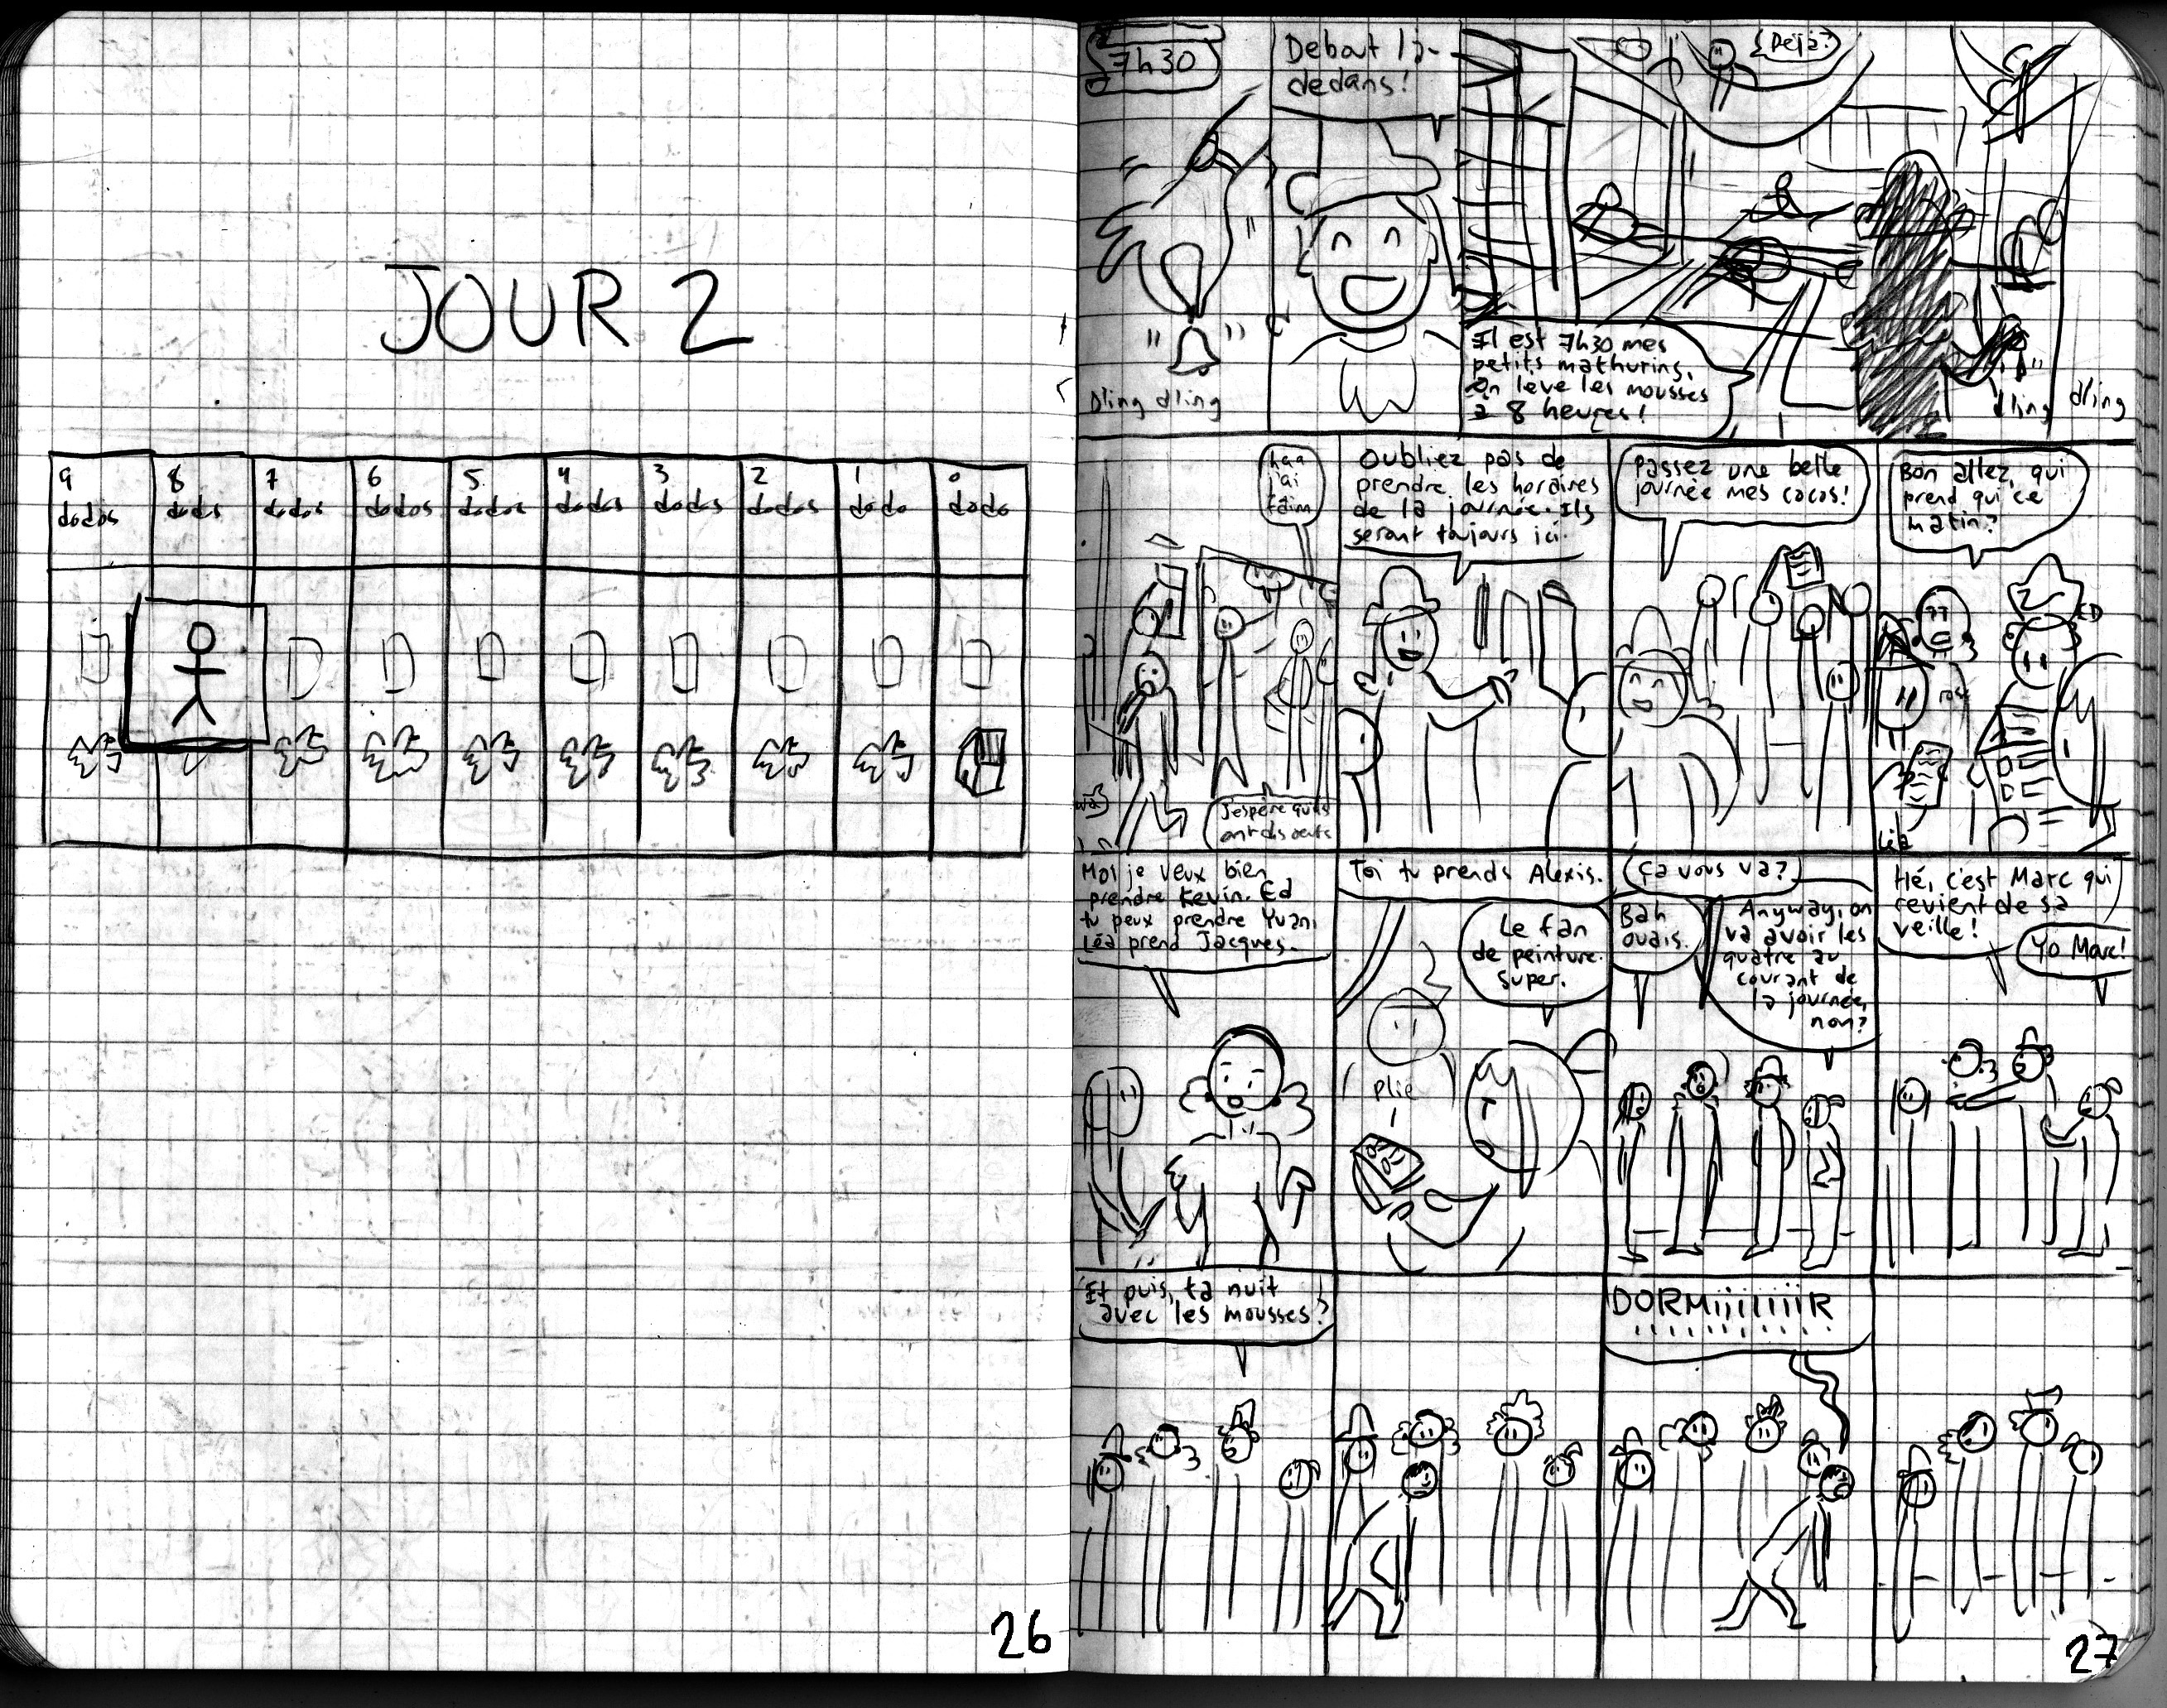 JOUR 2
9 dodos
8 dodos
7 dodos
6 dodos
5 dodos
4 dodos
3 dodos
2 dodos
1 dodo
0 dodo
26
7h30
Dling dling
Debout là-
dedans!
Déjà?
Il est 7h30 mes
petits mathurins,
on lève les mousses
à 8 heures!
dling
dling
haa
j'ai
faim
J'espère qu'ils
ont des oeufs
Oubliez pas de
prendre les horaires
de la journée. Ils
seront toujours ici.
Passez une belle
journée mes cocos!
Bon allez, qui
prend qui ce
matin?
ED
Léa
Moi je veux bien
prendre Kevin. Ed
tu peux prendre Yuani
Léa prend Jacques.
Toi tu prends Alexis.
Le fan
de peinture.
Super.
plie
Ça vous va?
Bah
ouais.
Anyway, on
va avoir les
quatre au
courant de
la journée,
non?
Hé, c'est Marc qui
revient de sa
veille!
Yo Marc!
Et puis, ta nuit
avec les mousses?
DORMiiiiiiiiR
27